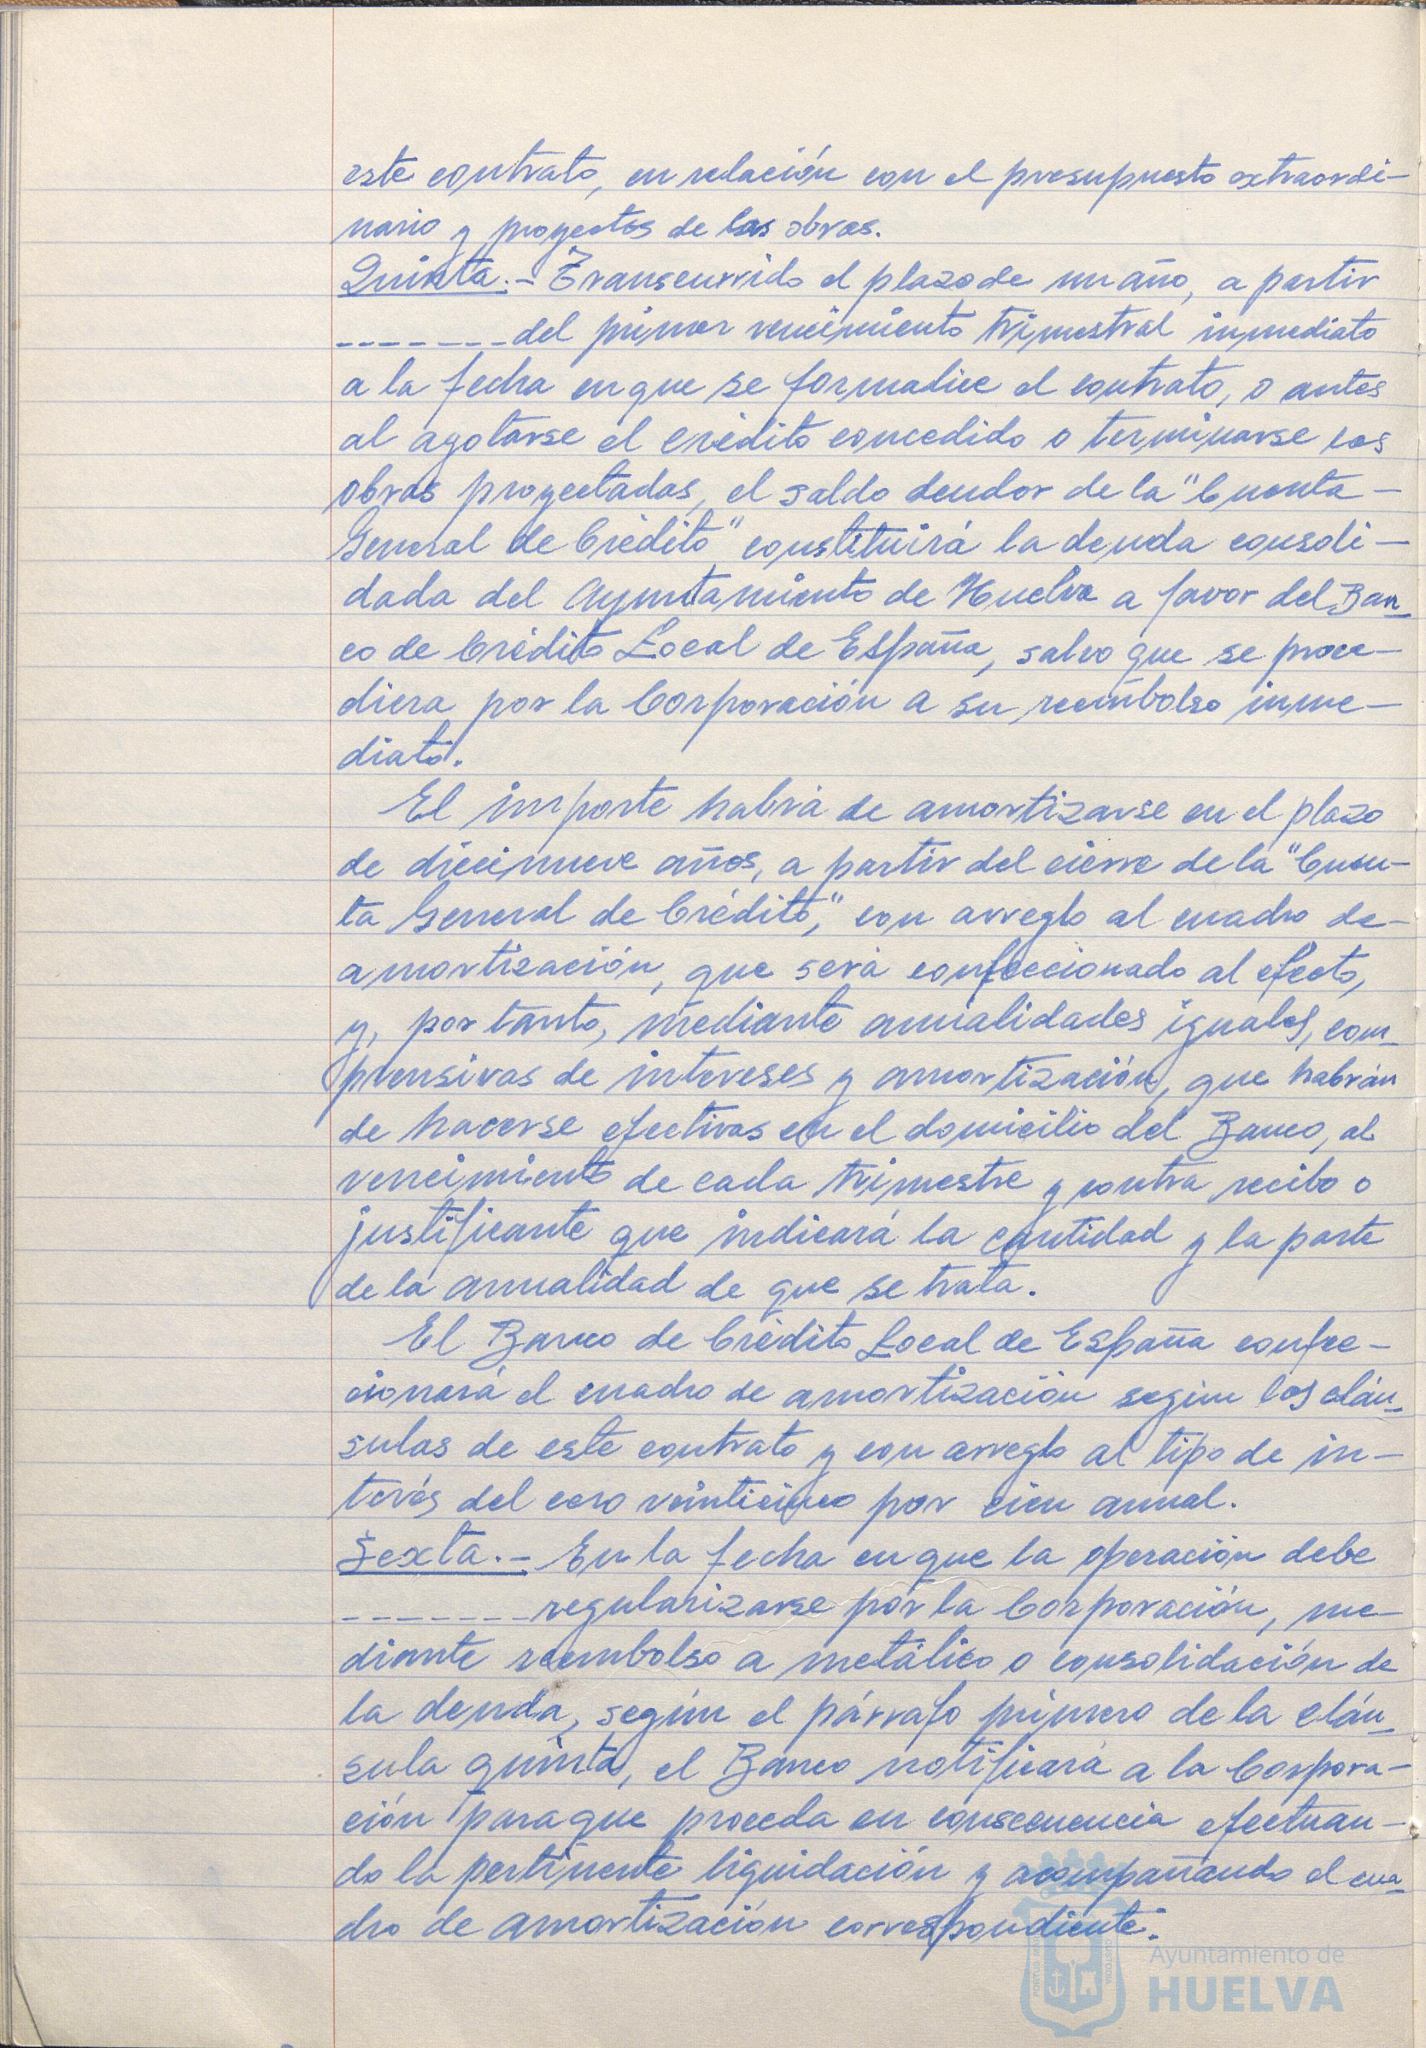 este contrato, en relación con el presupuesto extraordi-
nario y proyectos de las obras.
Quinta.- Transcurrido el plazo de un año, a partir
------- del primer vencimiento trimestral inmediato
a la fecha en que se formalice el contrato, o antes
al agotarse el crédito concedido o terminarse las
obras proyectadas, el saldo deudor de la "Cuenta -
General de Crédito" constituirá la deuda consoli-
dada del Ayuntamiento de Huelva a favor del Ban-
co de Crédito Local de España, salvo que se proce-
diera por la Corporación a su reembolso inme-
diato.
El importe habrá de amortizarse en el plazo
de diecinueve años, a partir del cierre de la "Cuen-
ta General de Crédito," con arreglo al cuadro de-
amortización, que será confeccionado al efecto,
y, por tanto, mediante anualidades iguales, com-
prensivas de intereses y amortización, que habrán
de hacerse efectivas en el domicilio del Banco, al
vencimiento de cada trimestre y contra recibo o
justificante que indicará la cantidad y la parte
de la anualidad de que se trata.
El Banco de Crédito Local de España confec-
cionará el cuadro de amortización según las cláu-
sulas de este contrato y con arreglo al tipo de in-
terés del cero veinticinco por cien anual.
Sexta.- En la fecha en que la operación debe
------- regularizarse por la Corporación, me-
diante reembolso a metálico o consolidación de
la deuda, según el párrafo primero de la cláu-
sula quinta, el Banco notificará a la Corpora-
ción para que proceda en consecuencia efectuan-
do la pertinente liquidación y acompañando el cua-
dro de amortización correspondiente.
Ayuntamiento de
HUELVA